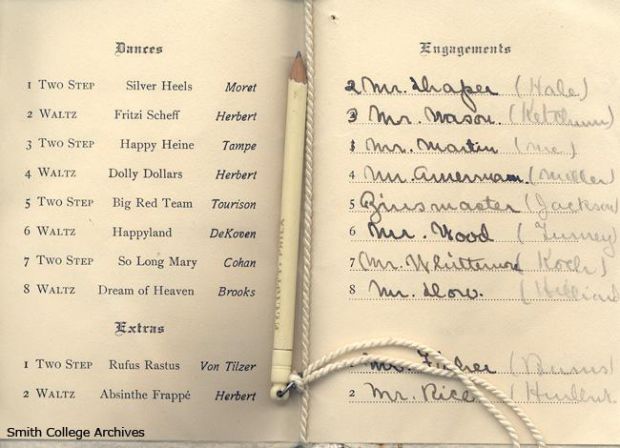 Dances
1 Two Step Silver Heels Moret
2 Waltz Fritzi Scheff Herbert
3 Two Step Happy Heine Tampe
4 Waltz Dolly Dollars Herbert
5 Two Step Big Red Team Tourison
6 Waltz Happyland DeKoven
7 Two Step So Long Mary Cohan
8 Waltz Dream of Heaven Brooks
Extras
1 Two Step Rufus Rastus Von Tilzer
2 Waltz Absinthe Frappé Herbert
Engagements
2 Mr. (Hale)
3 Mr. Wason (Ketchum)
1 Mr. Martin (me)
4 Mr. Amerman (Miller)
5 (Jackson)
6 Mr. Wood
7 Mr. Whittemore Koch)
8 Mr. Dow. (Hilliard
Mr. Fisher
2 Mr. Rice
Smith College Archives